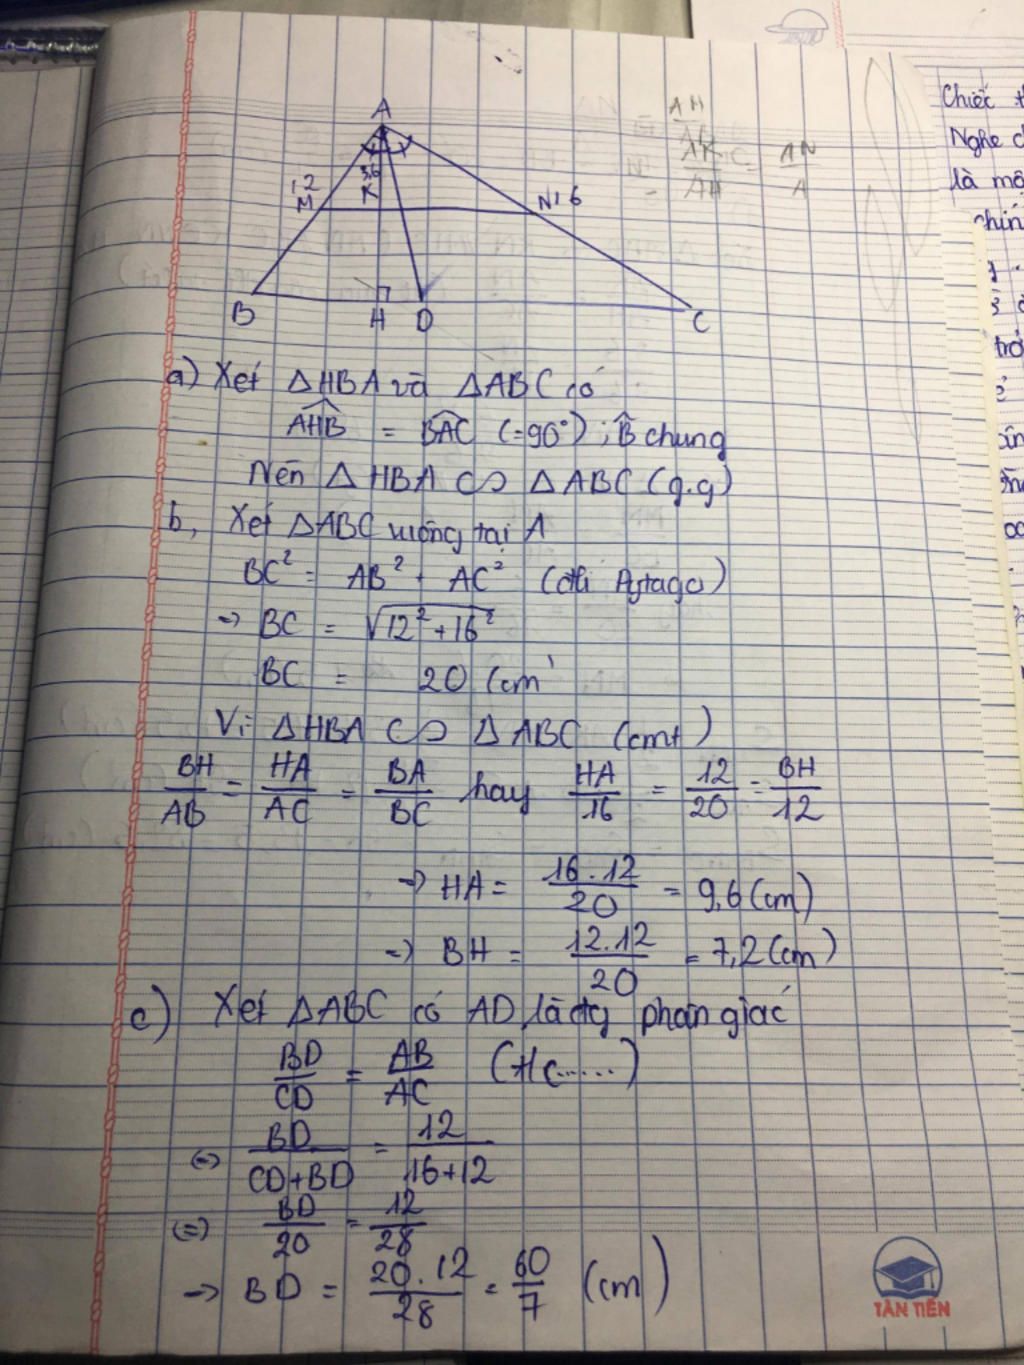 A
12
3,6
M
K
N
16
B
H
D
C
AH
AK
AH
=
AN
A
a) Xét △HBA và △ABC có
AHB = BAC (=90°) ; B̂ chung
Nên △HBA ∽ △ABC (g.g)
b, Xét △ABC vuông tại A
BC² = AB² + AC² (đli Pytago)
→ BC = √12²+16²
BC = 20 (cm
Vì △HBA ∽ △ABC (cmt)
BH/AB = HA/AC = BA/BC hay HA/16 = 12/20 = BH/12
→ HA = 16.12/20 = 9,6 (cm)
→ BH = 12.12/20 = 7,2 (cm)
c) Xét △ABC có AD là đg phân giác
BD/CD = AB/AC (t/c.....)
(=) BD/CD+BD = 12/16+12
(=) BD/20 = 12/28
→ BD = 20.12/28 = 60/7 (cm)
TÂN TIẾN
Chiếc
Nghe
là